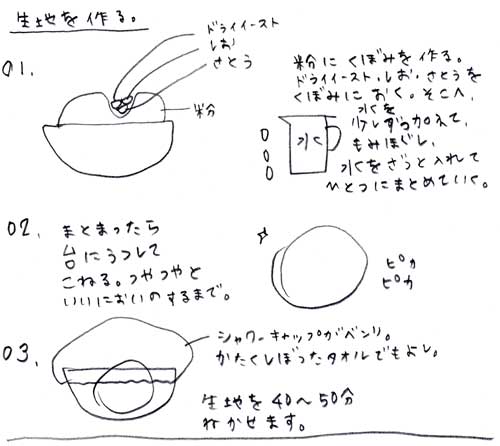 生地を作る。
01.
ドライイースト
しお
さとう
粉
粉にくぼみを作る。
ドライイースト、しお、さとうを
くぼみにおく。そこへ、
水を
少しずつ加えて、
もみほぐし、
水をざっと入れて
ひとつにまとめていく。
水
02.
まとまったら
台にうつして
こねる。つやつやと
いいにおいのするまで。
ピカ
ピカ
03.
シャワーキャップがベンリ。
かたくしぼったタオルでもよし。
生地を40〜50分
ねかせます。